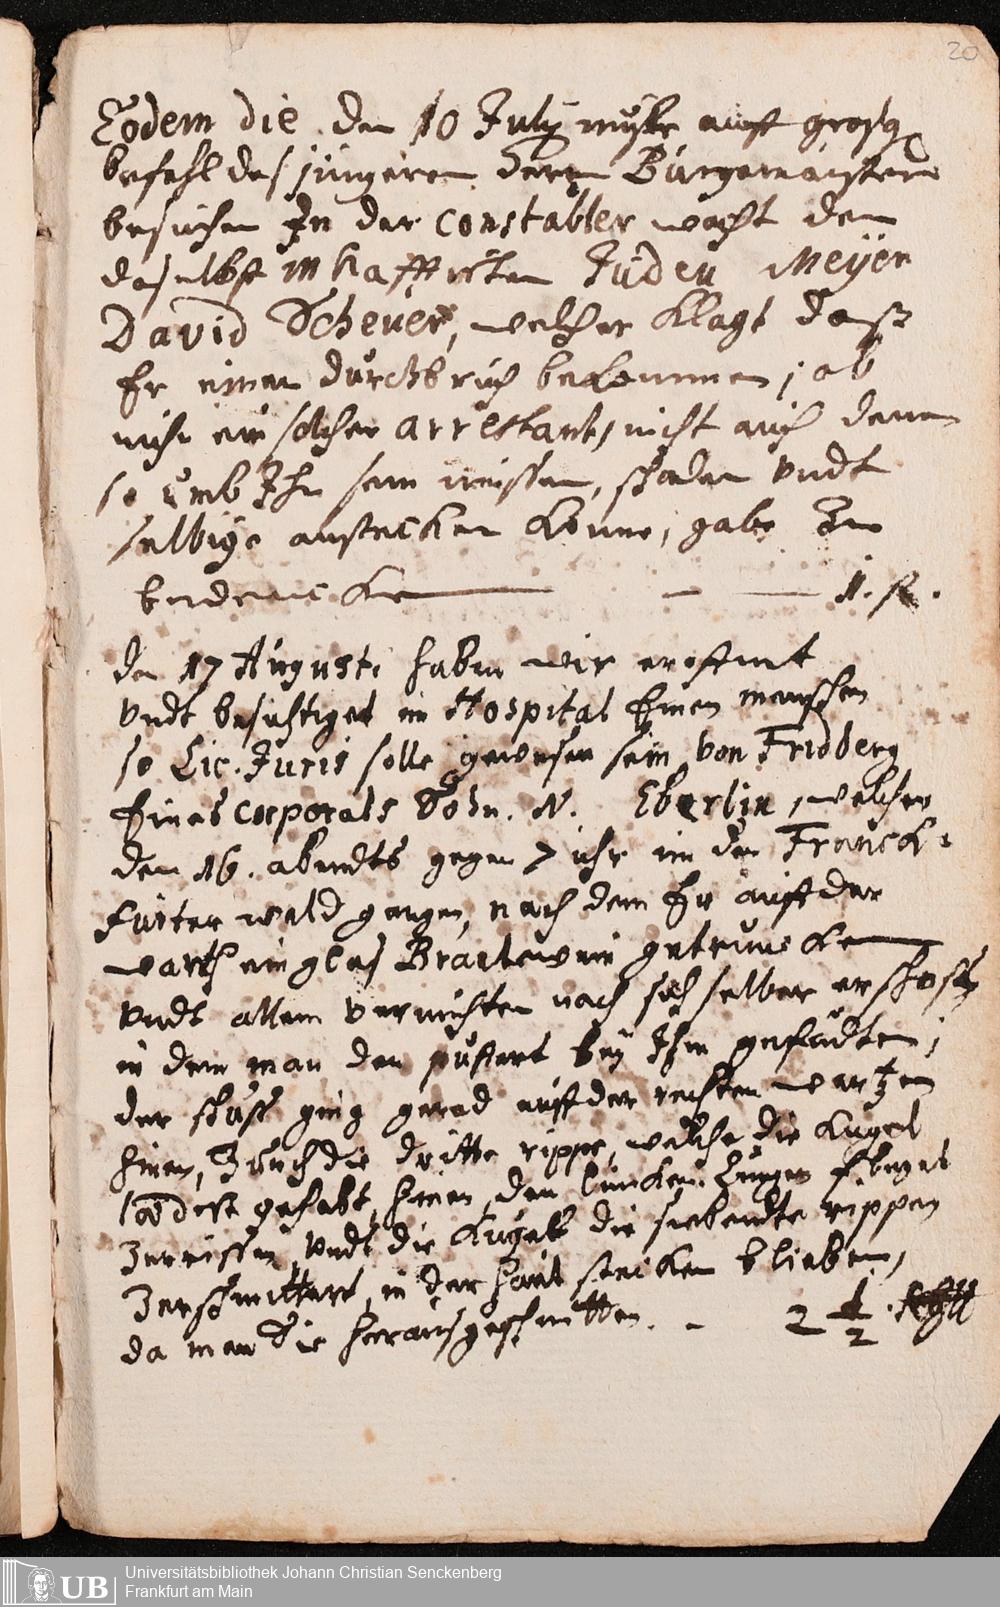 20
Eodem die den 10 July muste auff großg
befehl des jüngeren Herrn Bürgemeisters
besuchen In der Constabler wacht den
daselbst inhafftirten Juden Meyer
David Scheuer, welcher klagt daß
Er einen durchbruch bekommen; ob
nuhn ein solcher arrestant, nicht auch denen
so umb Ihn sein müssen, schaden undt
selbige anstecken könne, gabe Zu
bedencken — — 1. fl.
den 17 Augusti haben wir eröffnet
undt besichtiget im Hospital Einen menschen
so Lic. Juris solle gewesen sein von Fridberg
Eines Corporals Sohn. N. Eberlin, welcher
den 16. abendts gegen 7 uhr in den Franck-
furter wald gangen, nach dem Er auff der
warth ein glas Brantewein getruncken
undt allem vermuhten nach sich selber erschoss
in dem man den puffert bey Ihm gefundten;
der schuss ging gerad auff der rechten wartzen
hinein, Durch die dritte rippe, welche die Kugel
hinein, den lincken Lungen flügel
zerrissen, undt die Kugel die siebendte rippen
zerschmettert, in der haut stecken blieben,
da man die herausgeschnitten. - 2 1/2
Universitätsbibliothek Johann Christian Senckenberg
UB Frankfurt am Main